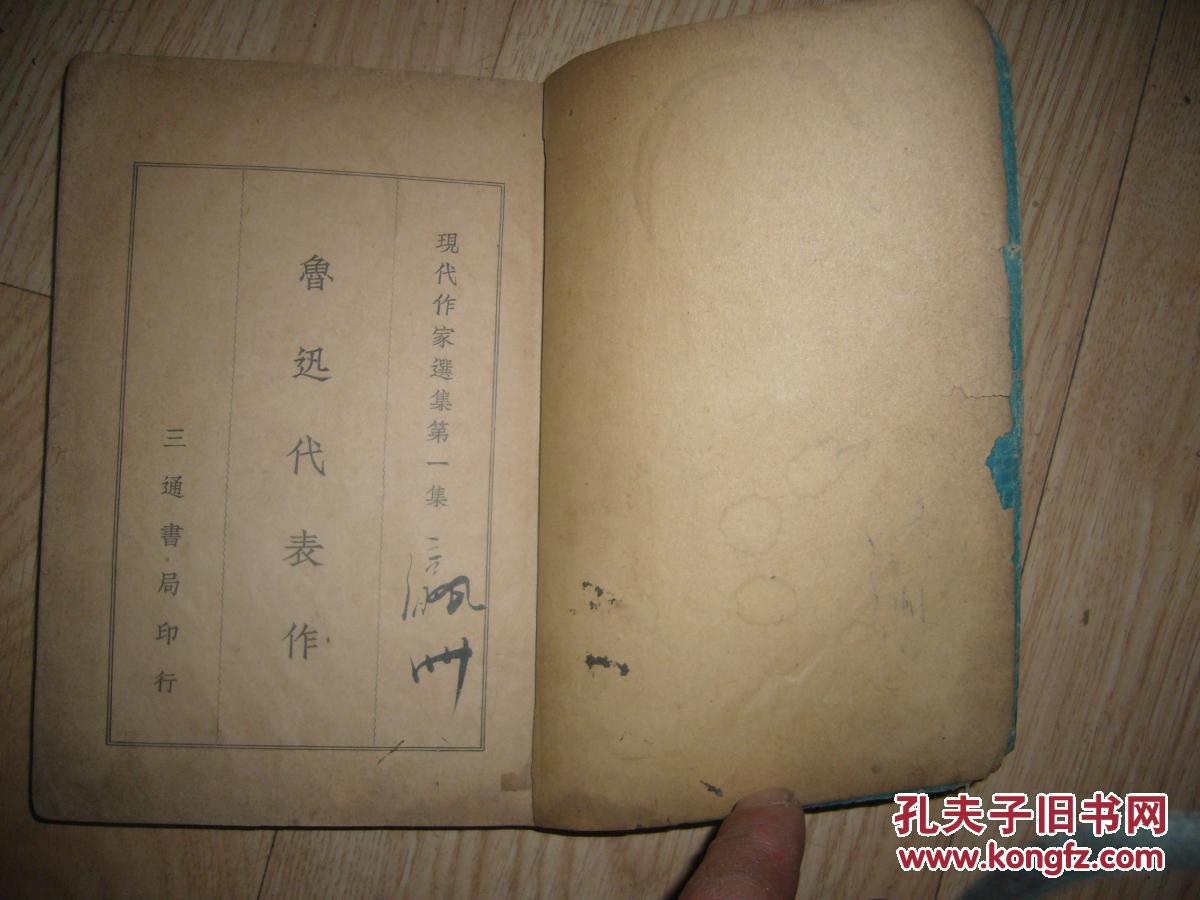 現代作家選集第一集
魯迅代表作
三通書局印行
孔夫子旧书网
www.kongfz.com